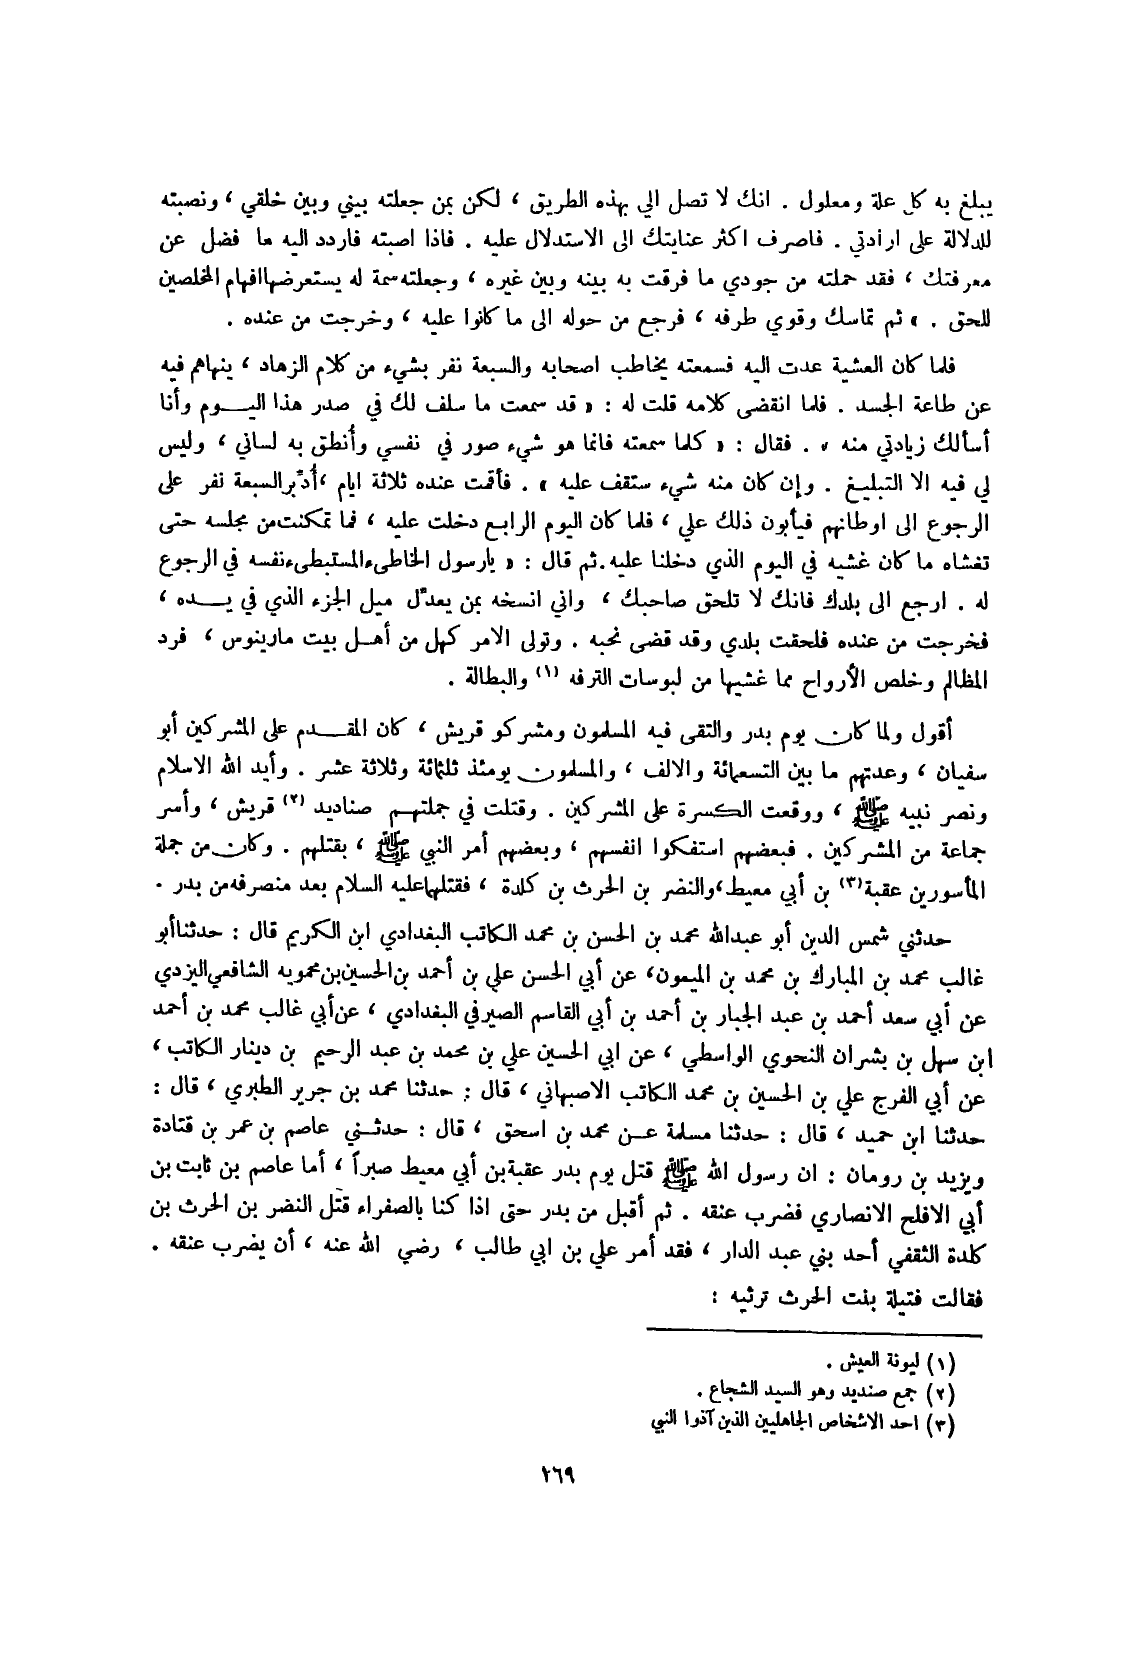 يبلغ به كل علة ومعلول . انك لا تصل الي بهذه الطريق ، لكن بمن جعلته بيني وبين خلقي ، ونصبته
للدلالة على ارادتي . فاصرف اكثر عنايتك الى الاستدلال عليه . فاذا اصبته فاردد اليه ما فضل عن
معرفتك ، فقد حملته من جودي ما فرقت به بينه وبين غيره ، وجعلته سمة له يستعرضها افهام المخلصين
للحق . » ثم تماسك وقوي طرفه ، فرجع من حوله الى ما كانوا عليه ، وخرجت من عنده .
فلما كان العشية عدت اليه فسمعته يخاطب اصحابه والسبعة نفر بشيء من كلام الزهاد ، ينهاهم فيه
عن طاعة الجسد . فلما انقضى كلامه قلت له : « قد سمعت ما سلف لك في صدر هذا اليوم وأنا
أسألك زيادتي منه » . فقال : « كلما سمعته فانما هو شيء صور في نفسي وأُنطق به لساني ، وليس
لي فيه الا التبليغ . وإن كان منه شيء ستقف عليه » . فأقمت عنده ثلاثة ايام ، أُدبّر السبعة نفر على
الرجوع الى اوطانهم فيأبون ذلك علي ، فلما كان اليوم الرابع دخلت عليه ، فما تمكنت من مجلسه حتى
تغشاه ما كان غشيه في اليوم الذي دخلنا عليه . ثم قال : « يا رسول الخاطىء المستبطىء نفسه في الرجوع
له . ارجع الى بلدك فانك لا تلحق صاحبك ، واني انسخه بمن يعدّل ميل الجزء الذي في يده ،
فخرجت من عنده فلحقت بلدي وقد قضى نحبه . وتولى الامر كهل من أهل بيت مارينوس ، فرد
المظالم وخلص الأرواح مما غشيها من لبوسات الترفه (١) والبطالة .
أقول ولما كان يوم بدر والتقى فيه المسلمون ومشركو قريش ، كان المقدم على المشركين أبو
سفيان ، وعدتهم ما بين التسعمائة والالف ، والمسلمون يومئذ ثلثمائة وثلاثة عشر . وأيد الله الاسلام
ونصر نبيه ﷺ ، ووقعت الكسرة على المشركين . وقتلت في جملتهم صناديد (٢) قريش ، وأسر
جماعة من المشركين . فبعضهم استفكوا انفسهم ، وبعضهم أمر النبي ﷺ ، بقتلهم . وكان من جملة
المأسورين عقبة (٣) بن أبي معيط ، والنضر بن الحرث بن كلدة ، فقتلهما عليه السلام بعد منصرفه من بدر .
حدثني شمس الدين أبو عبدالله محمد بن الحسن بن محمد الكاتب البغدادي ابن الكريم قال : حدثنا أبو
غالب محمد بن المبارك بن محمد بن الميمون ، عن أبي الحسن علي بن أحمد بن الحسين بن محمويه الشافعي اليزدي
عن أبي سعد أحمد بن عبد الجبار بن أحمد بن أبي القاسم الصيرفي البغدادي ، عن أبي غالب محمد بن أحمد
ابن سهل بن بشران النحوي الواسطي ، عن ابي الحسين علي بن محمد بن عبد الرحيم بن دينار الكاتب ،
عن أبي الفرج علي بن الحسين بن محمد الكاتب الاصبهاني ، قال : حدثنا محمد بن جرير الطبري ، قال :
حدثنا ابن حميد ، قال : حدثنا مسلمة عن محمد بن اسحق ، قال : حدثني عاصم بن عمر بن قتادة
ويزيد بن رومان : ان رسول الله ﷺ قتل يوم بدر عقبة بن أبي معيط صبراً ، أما عاصم بن ثابت بن
أبي الافلح الانصاري فضرب عنقه . ثم أقبل من بدر حتى اذا كنا بالصفراء قتل النضر بن الحرث بن
كلدة الثقفي أحد بني عبد الدار ، فقد أمر علي بن ابي طالب ، رضي الله عنه ، أن يضرب عنقه .
فقالت قتيلة بنت الحرث ترثيه :
(١) ليونة العيش .
(٢) جمع صنديد وهو السيد الشجاع .
(٣) احد الاشخاص الجاهليين الذين آذوا النبي
٢٦٩